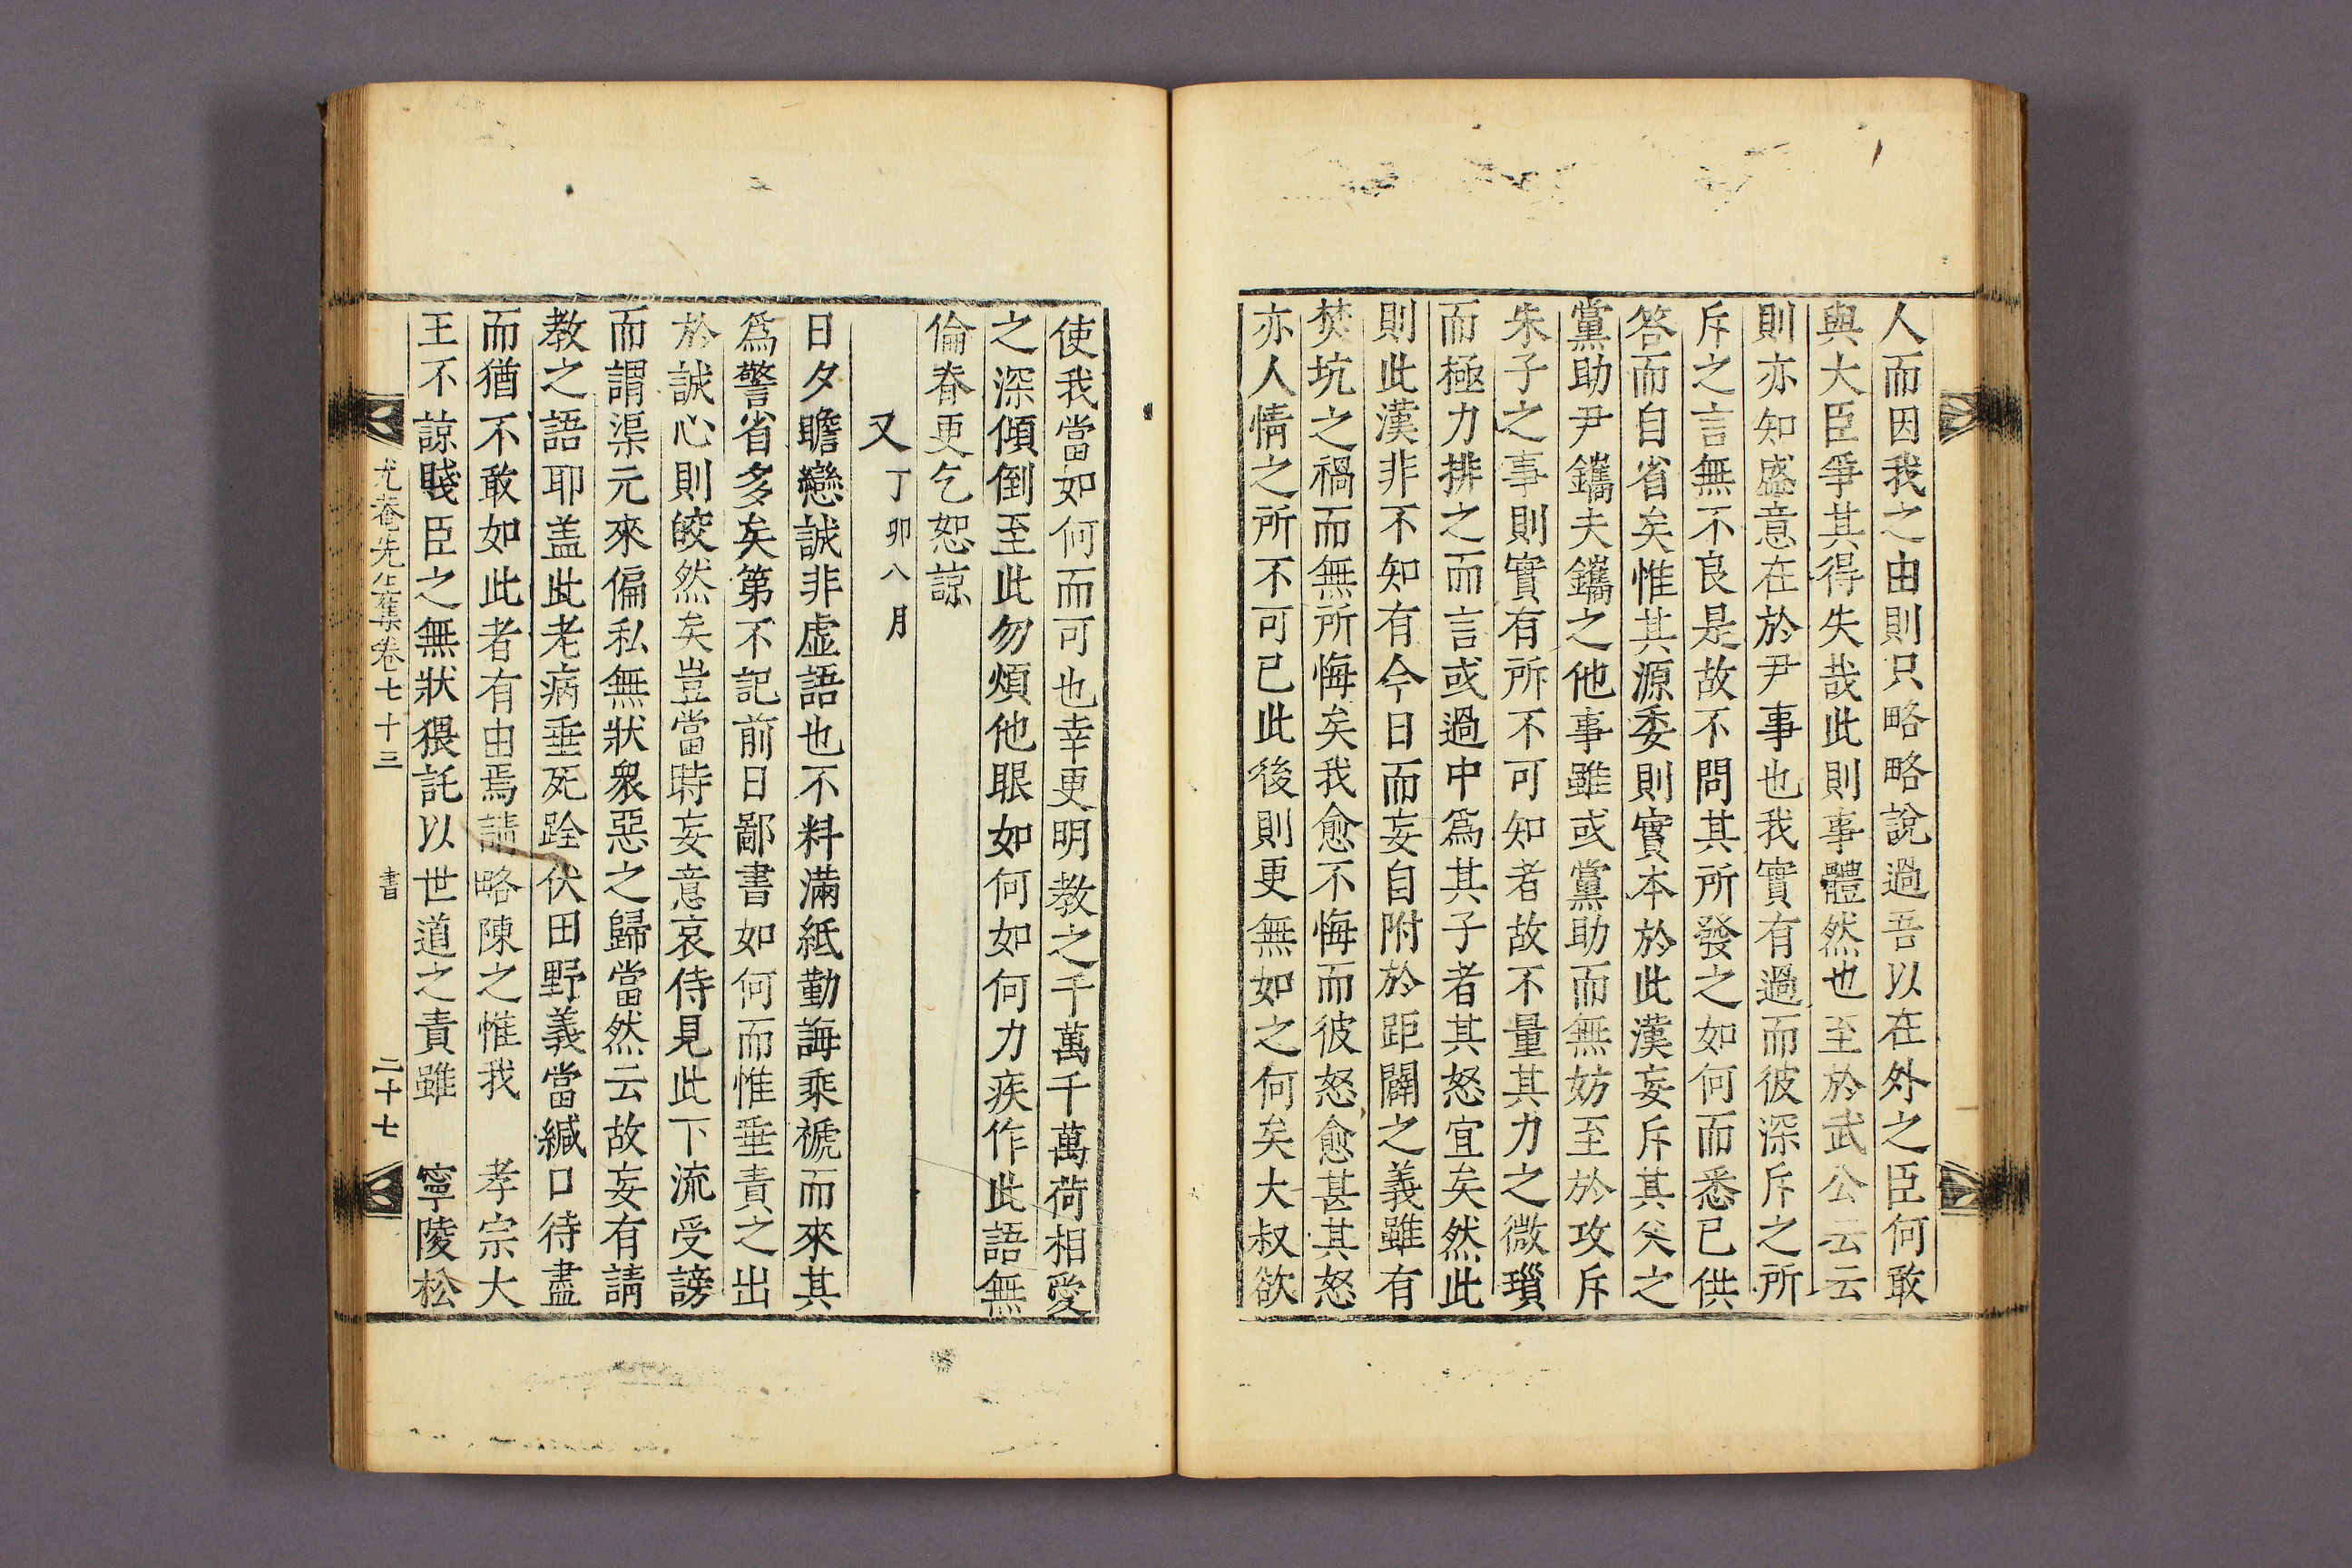 人而因我之由則只略略說過吾以在外之臣何敢
與大臣爭其得失哉此則事體然也至於武公云云
則亦知盛意在於尹事也我實有過而彼深斥之所
斥之言無不良是故不問其所發之如何而悉已供
答而自省矣惟其源委則實本於此漢妄斥其父之
黨助尹鑴夫鑴之他事雖或黨助而無妨至於攻斥
朱子之事則實有所不可知者故不量其力之微瑣
而極力排之而言或過中爲其子者其怒宜矣然此
則此漢非不知有今日而妄自附於距闢之義雖有
焚坑之禍而無所悔矣我愈不悔而彼怒愈甚其怒
亦人情之所不可已此後則更無如之何矣大叔欲
使我當如何而可也幸更明教之千萬千萬荷相愛
之深傾倒至此勿煩他眼如何如何力疾作此語無
倫脊更乞恕諒
又丁卯八月
日夕瞻戀誠非虛語也不料滿紙勤誨乘褫而來其
爲警省多矣第不記前日鄙書如何而惟垂責之出
於誠心則皎然矣豈當時妄意哀侍見此下流受謗
而謂渠元來偏私無狀衆惡之歸當然云故妄有請
教之語耶盖此老病垂死跧伏田野義當緘口待盡
而猶不敢如此者有由焉請略陳之惟我 孝宗大
王不諒賤臣之無狀猥託以世道之責雖 寧陵松
尤菴先生集卷七十三 書 二十七